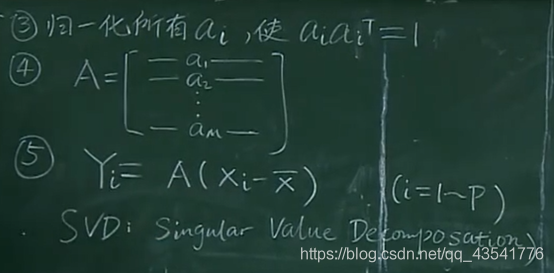 ③ 归一化所有 aᵢ, 使 aᵢaᵢᵀ=1
④ A=[—a₁—
—a₂—
⋮
—aₘ—]
⑤ Yᵢ= A(xᵢ-x̄) (i=1~P)
SVD: Singular Value Decomposation)
https://blog.csdn.net/qq_43541776